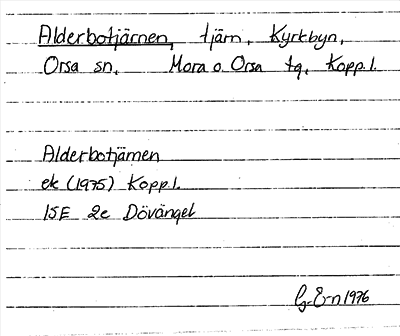 Alderbotjärnen, tjärn, Kyrkbyn,
Orsa sn, Mora o. Orsa tg, Kopp.l.
Alderbotjärnen
ek (1975) Kopp.l.
15E 2e Dövängel
G. Ern 1976